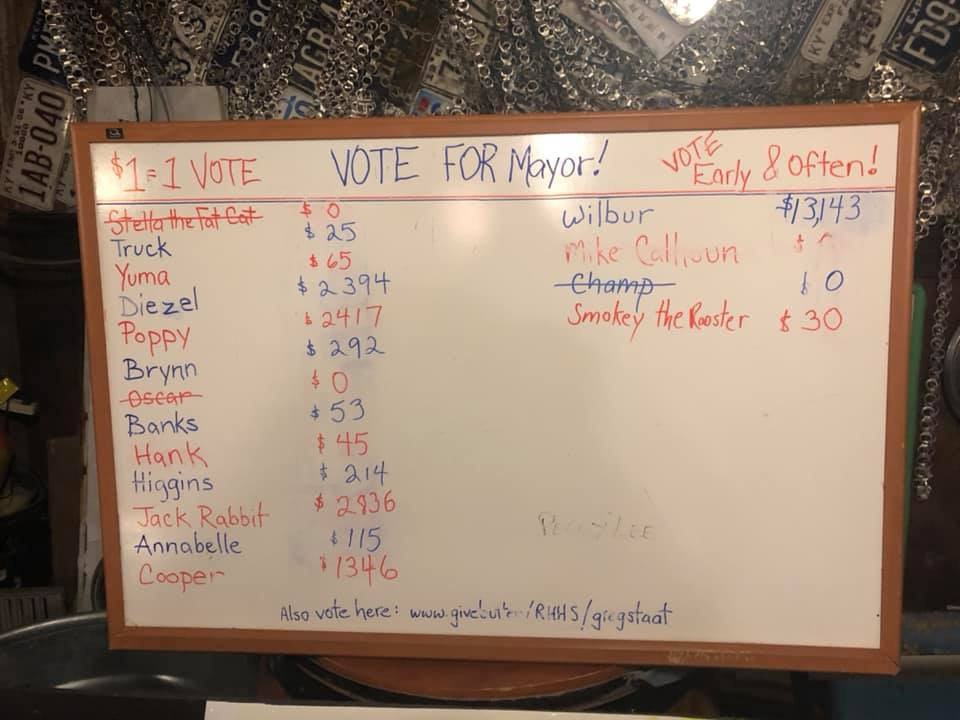 1AB-040
$1=1 VOTE VOTE FOR Mayor! VOTE Early & Often!
Stella the Fat Cat $ 0
Truck $ 25
Yuma $ 65
Diezel $ 2394
Poppy $ 2417
Brynn $ 292
Oscar $ 0
Banks $ 53
Hank $ 45
Higgins $ 214
Jack Rabbit $ 2836
Annabelle $ 115
Cooper $ 1346
Wilbur $13,143
Mike Calhoun $
Champ $ 0
Smokey the Rooster $ 30
Also vote here: /RHHS/gregstaat